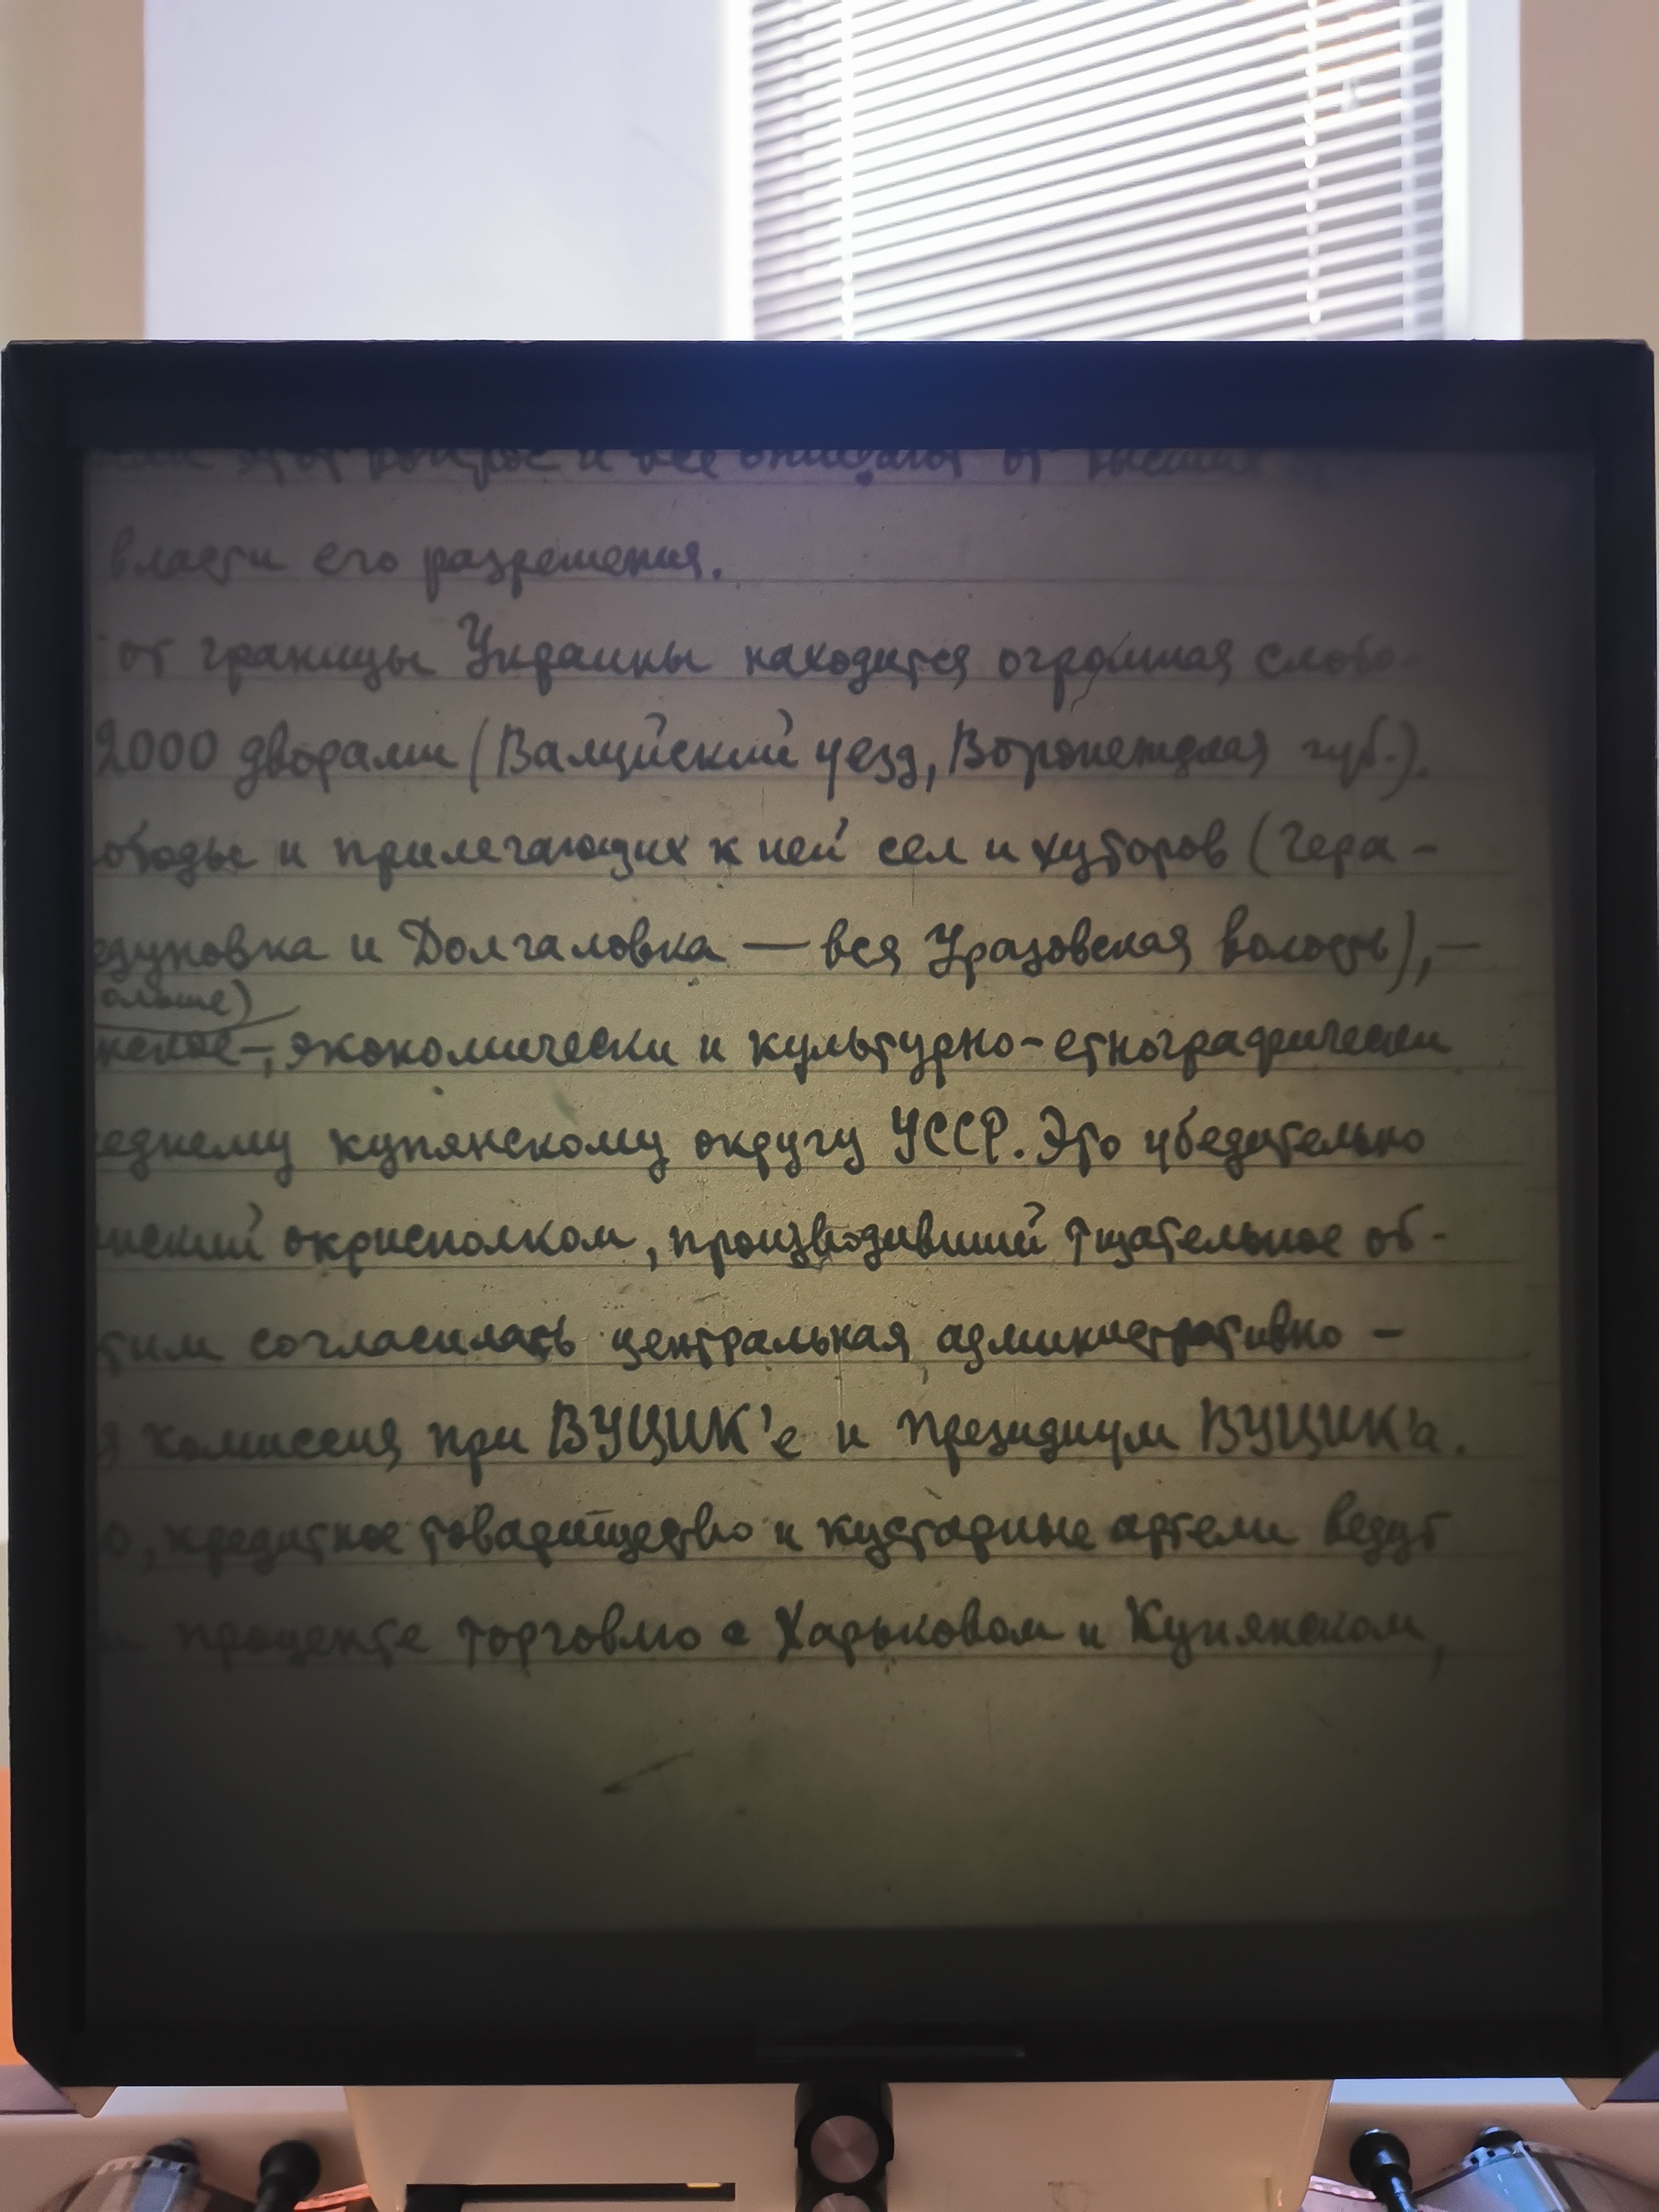 этот вопрос и все ожидают от высшей
власти его разрешения.
от границы Украины находится огромная слобо-
2000 дворами (Валуйский уезд, Воронежская губ.).
ободы и прилегающих к ней сел и хуторов (Гера-
езуповка и Долгаловка — вся Уразовская волость), —
ольше)
нское-, экономически и культурно-етнографически
еднему купянскому округу УССР. Это убедительно
нский окрисполком, производивший тщательное об-
тим согласилась центральная административно-
я комиссия при ВУЦИК'е и Президиум ВУЦИК'а.
о, кредитное товарищество и кустарные артели ведут
проценте торговлю с Харьковом и Купянском,